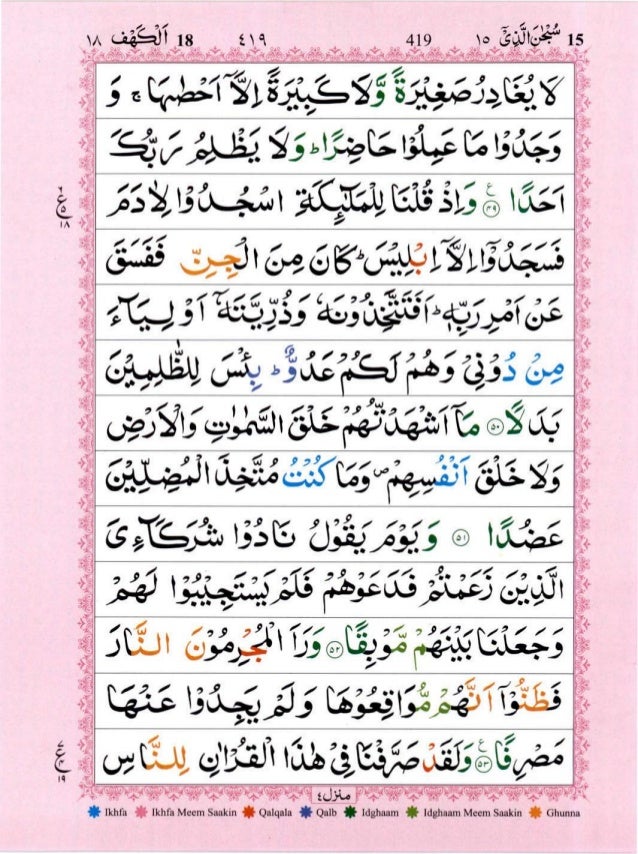 15 سُبْحٰنَ الَّذِیْٓ ١٥ 419 ٤١٩ 18 اَلْكَهْف ١٨
لَا یُغَادِرُ صَغِیْرَةً وَّلَا كَبِیْرَةً اِلَّاۤ اَحْصٰىهَا ۚ وَ
وَجَدُوْا مَا عَمِلُوْا حَاضِرًا ؕ وَلَا یَظْلِمُ رَبُّكَ
اَحَدًا ۟ع ٤٩ وَاِذْ قُلْنَا لِلْمَلٰٓىِٕكَةِ اسْجُدُوْا لِاٰدَمَ
ع ٦ ٥ ١٨
فَسَجَدُوْۤا اِلَّاۤ اِبْلِیْسَ ؕ كَانَ مِنَ الْجِنِّ فَفَسَقَ
عَنْ اَمْرِ رَبِّهٖ ؕ اَفَتَتَّخِذُوْنَهٗ وَذُرِّیَّتَهٗۤ اَوْلِیَآءَ
مِنْ دُوْنِیْ وَهُمْ لَكُمْ عَدُوٌّ ؕ بِئْسَ لِلظّٰلِمِیْنَ
بَدَلًا ٥٠ مَاۤ اَشْهَدْتُّهُمْ خَلْقَ السَّمٰوٰتِ وَالْاَرْضِ
وَلَا خَلْقَ اَنْفُسِهِمْ ۪ وَمَا كُنْتُ مُتَّخِذَ الْمُضِلِّیْنَ
عَضُدًا ٥١ وَیَوْمَ یَقُوْلُ نَادُوْا شُرَكَآءِیَ
الَّذِیْنَ زَعَمْتُمْ فَدَعَوْهُمْ فَلَمْ یَسْتَجِیْبُوْا لَهُمْ
وَجَعَلْنَا بَیْنَهُمْ مَّوْبِقًا ٥٢ وَرَاَ الْمُجْرِمُوْنَ النَّارَ
فَظَنُّوْۤا اَنَّهُمْ مُّوَاقِعُوْهَا وَلَمْ یَجِدُوْا عَنْهَا
مَصْرِفًا ع ٥٣ وَلَقَدْ صَرَّفْنَا فِیْ هٰذَا الْقُرْاٰنِ لِلنَّاسِ
ع ٤ ١٩
منزل ٤
Ikhfa Ikhfa Meem Saakin Qalqala Qalb Idghaam Idghaam Meem Saakin Ghunna